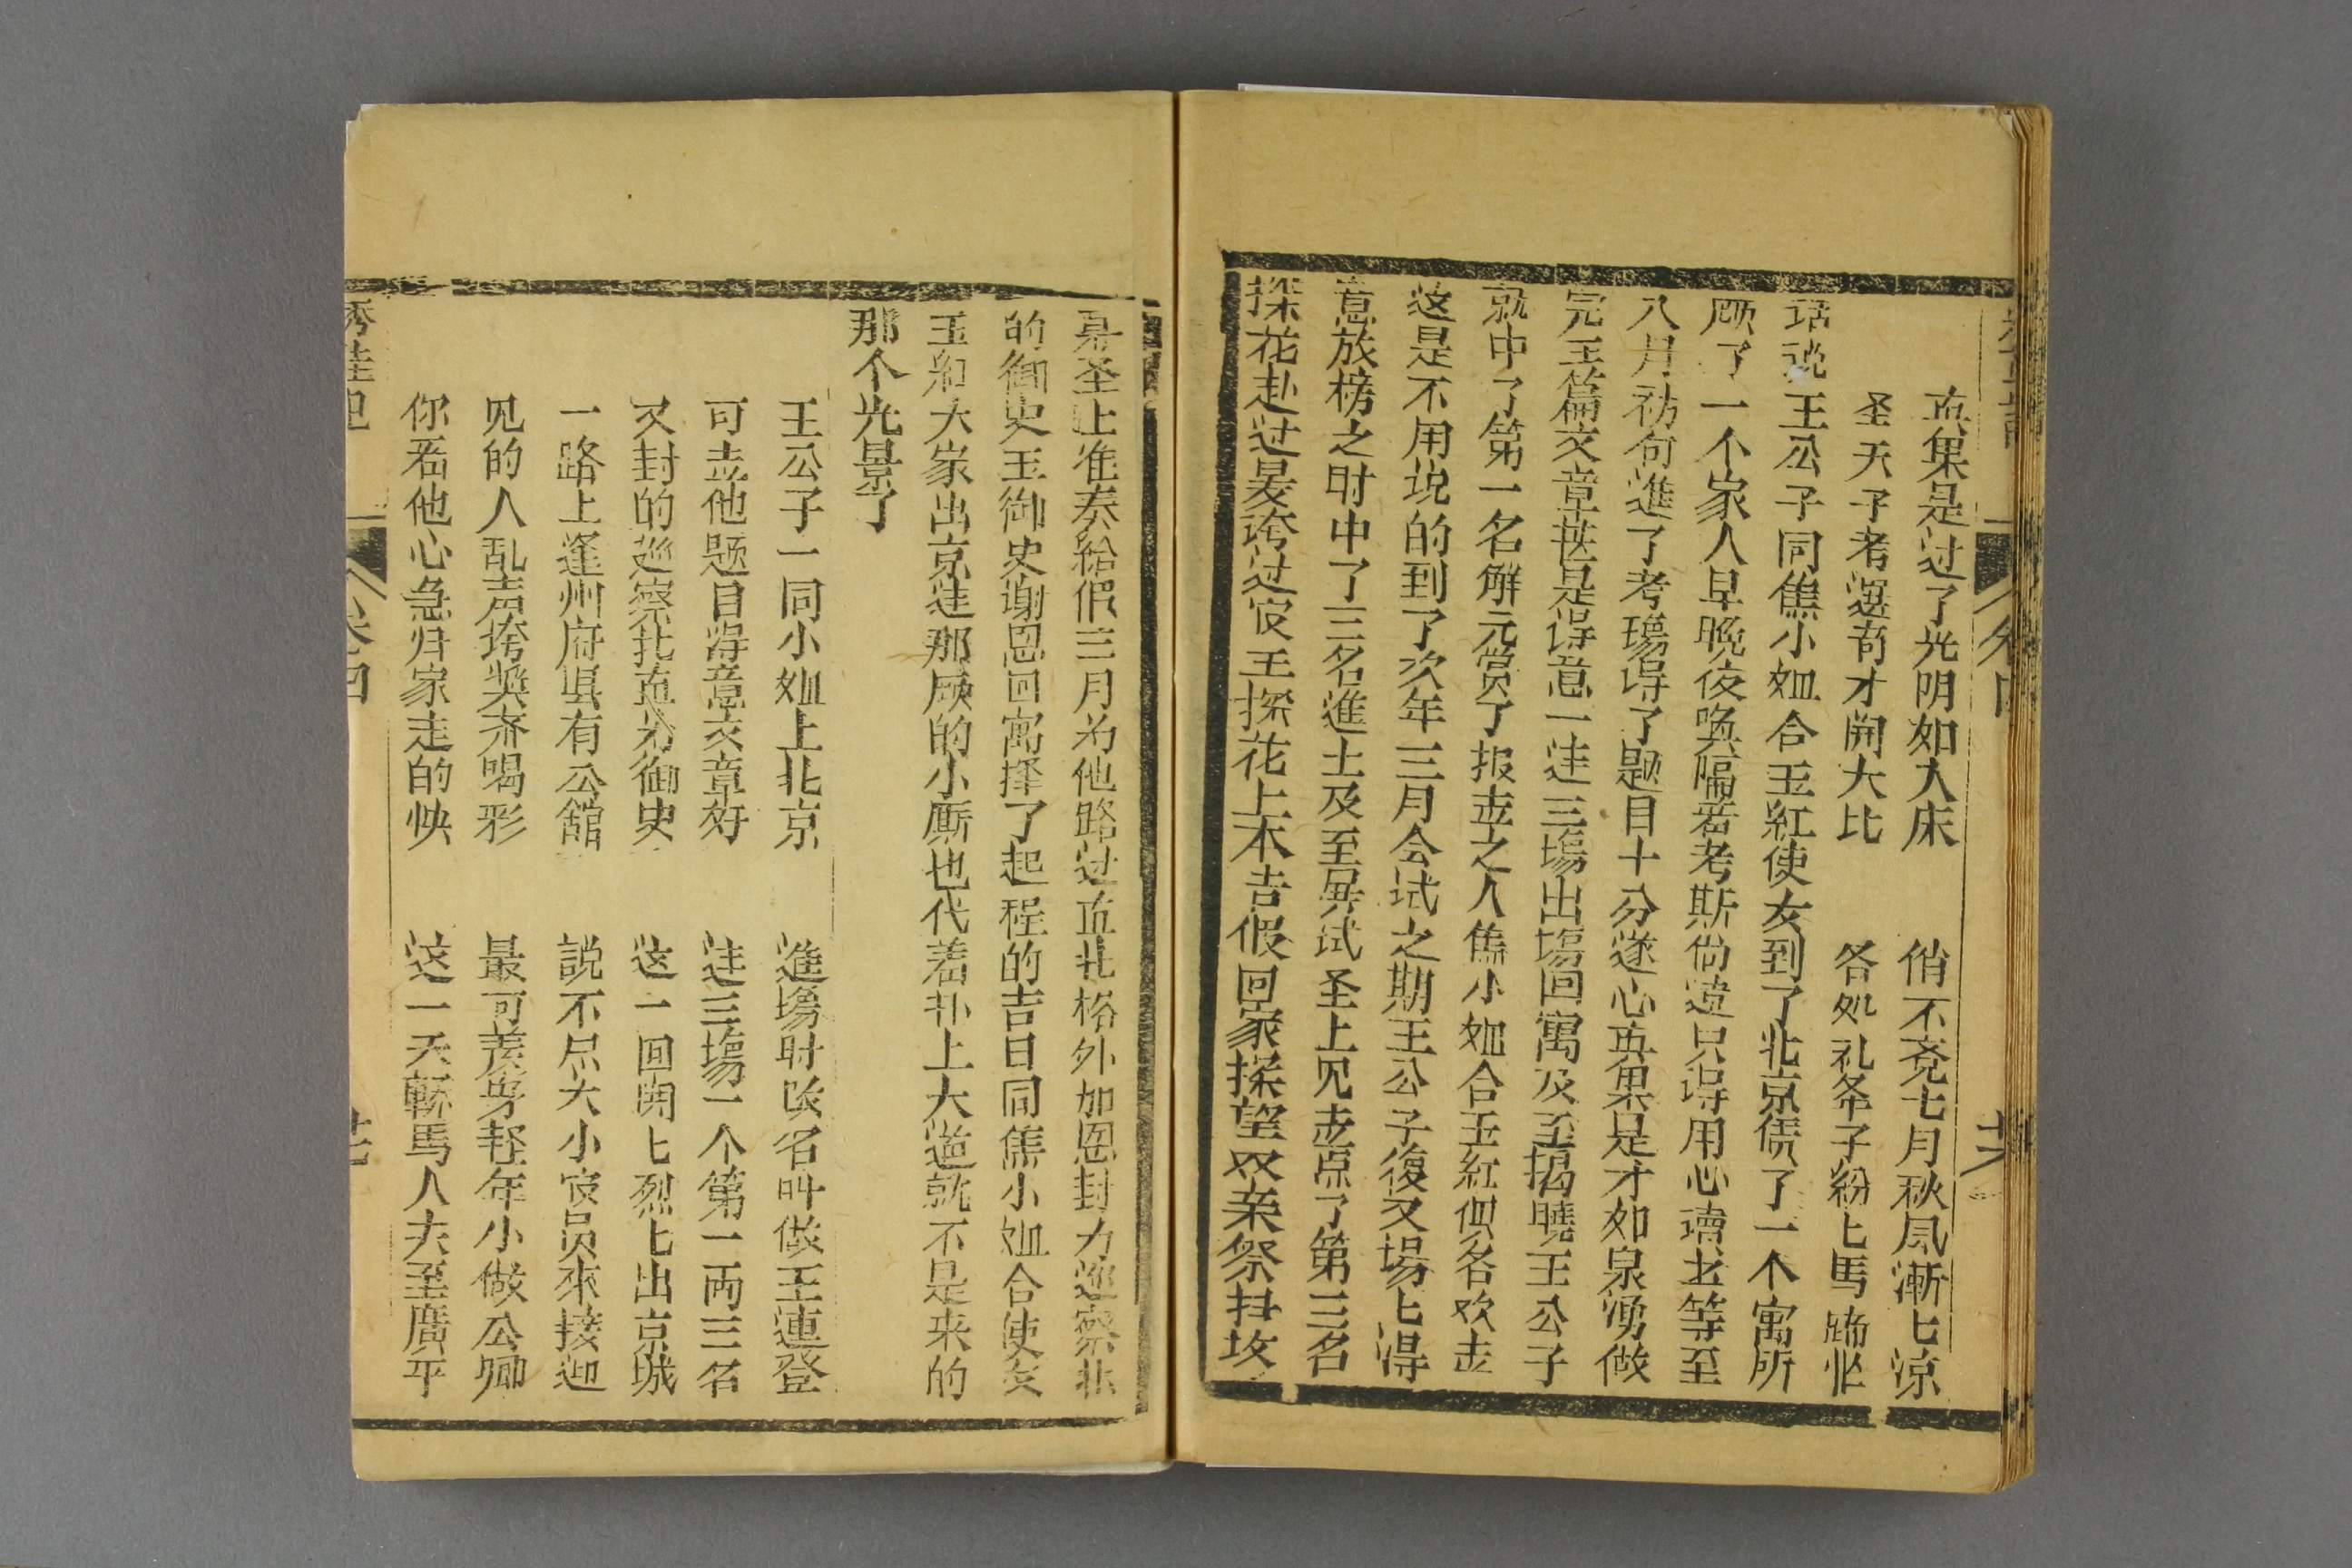 真果是过了光明如大床　俏不觉七月秋風漸匕凉
圣天子考選奇才開大比　各処礼条子紛匕馬蹄忙
話说王公子同焦小姐合玉紅使女到了北京偆了一个寓所
顾了一个家人早晚夜唤隔着考斯尚遠只得用心讀书等至
八月初旬進了考塲得了题目十分遂心真果是才如泉湧做
完玉篇文章甚是得意一連三塲出塲回寓及至揭曉王公子
就中了第一名解元赏了报喜之人焦小姐合玉紅俱各欢喜
这是不用说的到了次年三月会试之期王公子復又場匕得
意放榜之时中了三名進士及至殿试圣上见喜点了第三名
探花赴过宴誇过官王探花上本告假回家探望双亲祭扫坟
墓圣上准奏給假三月为他路过直北格外加恩封为巡察北
的御史王御史谢恩回寓择了起程的吉日同焦小姐合使女
玉紅大家出京連那顾的小厮也代着扑上大道就不是来的
那个光景了
王公子一同小姐上北京　進塲时改名叫做王連登
可喜他题目得意文章好　連三塲一个第一両三名
又封的巡察北直为御史　这一回開匕烈匕出京城
一路上逢州府县有公舘　説不尽大小官员來接迎
见的人乱声垮奬齐喝彩　最可羡身輕年小做公卿
你看他心急归家走的快　这一天轎馬人夫至廣平
綉鞋记　卷四　廿七